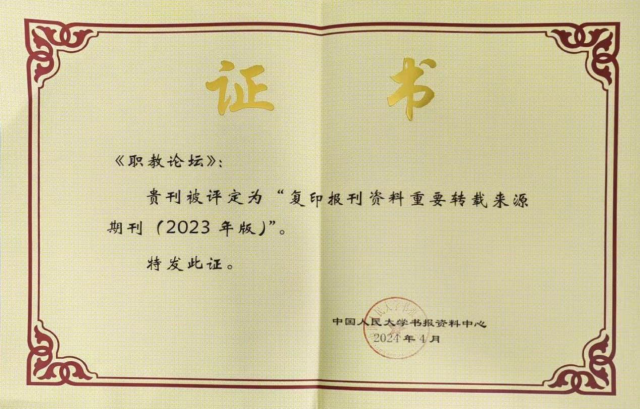 证 书
《职教论坛》：
贵刊被评定为“复印报刊资料重要转载来源
期刊（2023 年版）”。
特发此证。
中国人民大学书报资料中心
2024 年 4 月